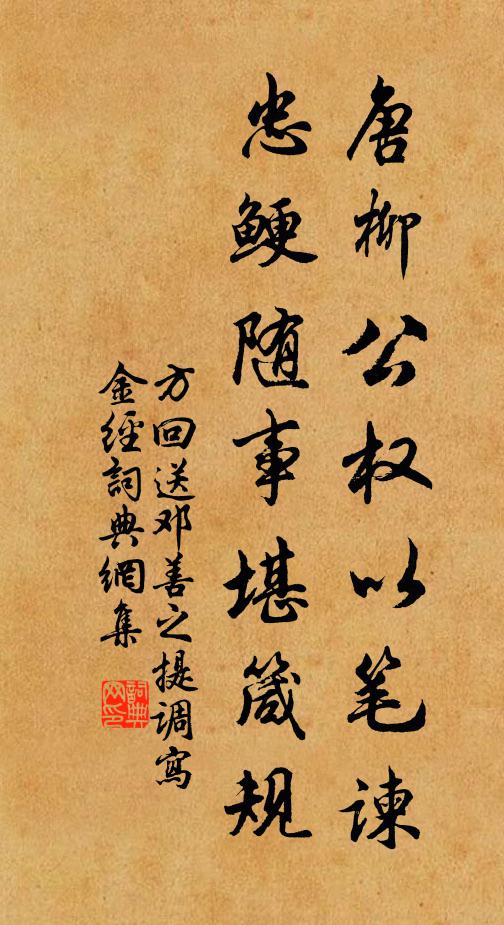 唐柳公权以笔谏
忠鲠随事堪箴规
方回送邓善之提调写
金經詞典網集
詞典网印